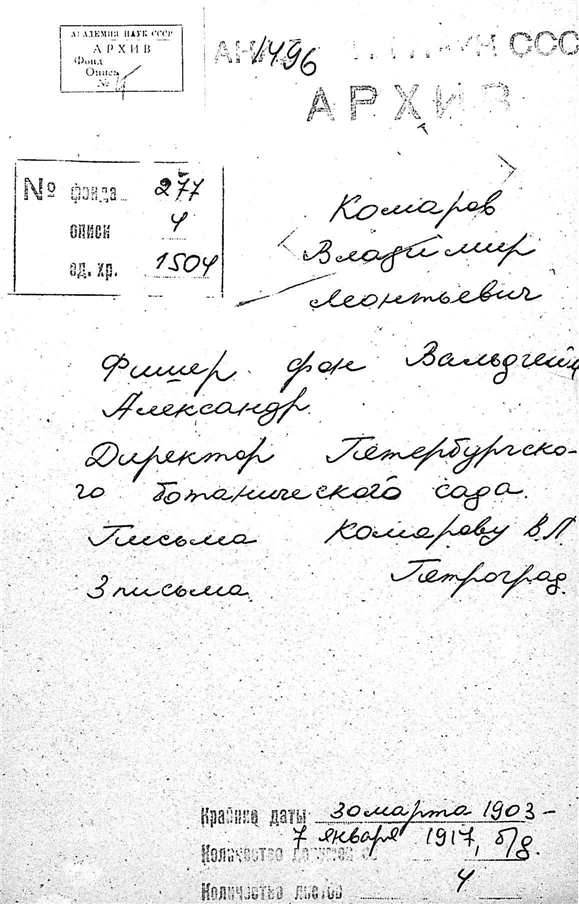 АКАДЕМИЯ НАУК СССР
АРХИВ
Фонд
Опись
№ 4
1496
НАУК СССР
АРХИВ
№ фонда 277
описи 4
ед. хр. 1504
Комаров
Владимир
Леонтьевич
Фишер фон Вальдгейм
Александр
Директор Петербургско-
го ботанического сада.
Письма Комарову В.Л.
Петроград.
3 письма.
Крайние даты 30 марта 1903 -
7 января 1917, б/д.
Количество
Количество листов 4